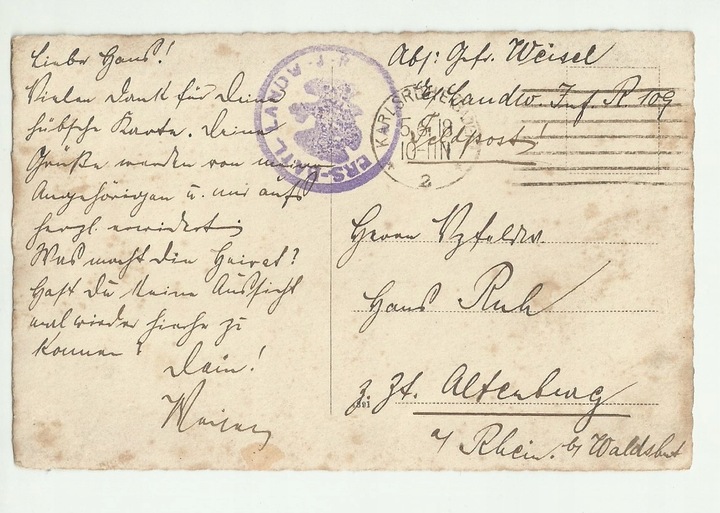 Liebe Hans!
Vielen Dank für Deine
hübsche Karte. Deine
Grüße werden von meinen
Angehörigen u. mir aufs
herzl. erwidert
Was macht die Heirat?
Hast Du keine Aussicht
mal wieder hierher zu
kommen?
Dein!
ERS-BATL. LANDW.
KARLSRUHE
5.9.18
10-11N
2
Abs: Gefr. Weisel
Landw. Inf. R 109
Feldpost!
Herrn Vzfeldw.
Hans Ruh
z. Zt. Altenberg
a/ Rhein. b/ Waldshut